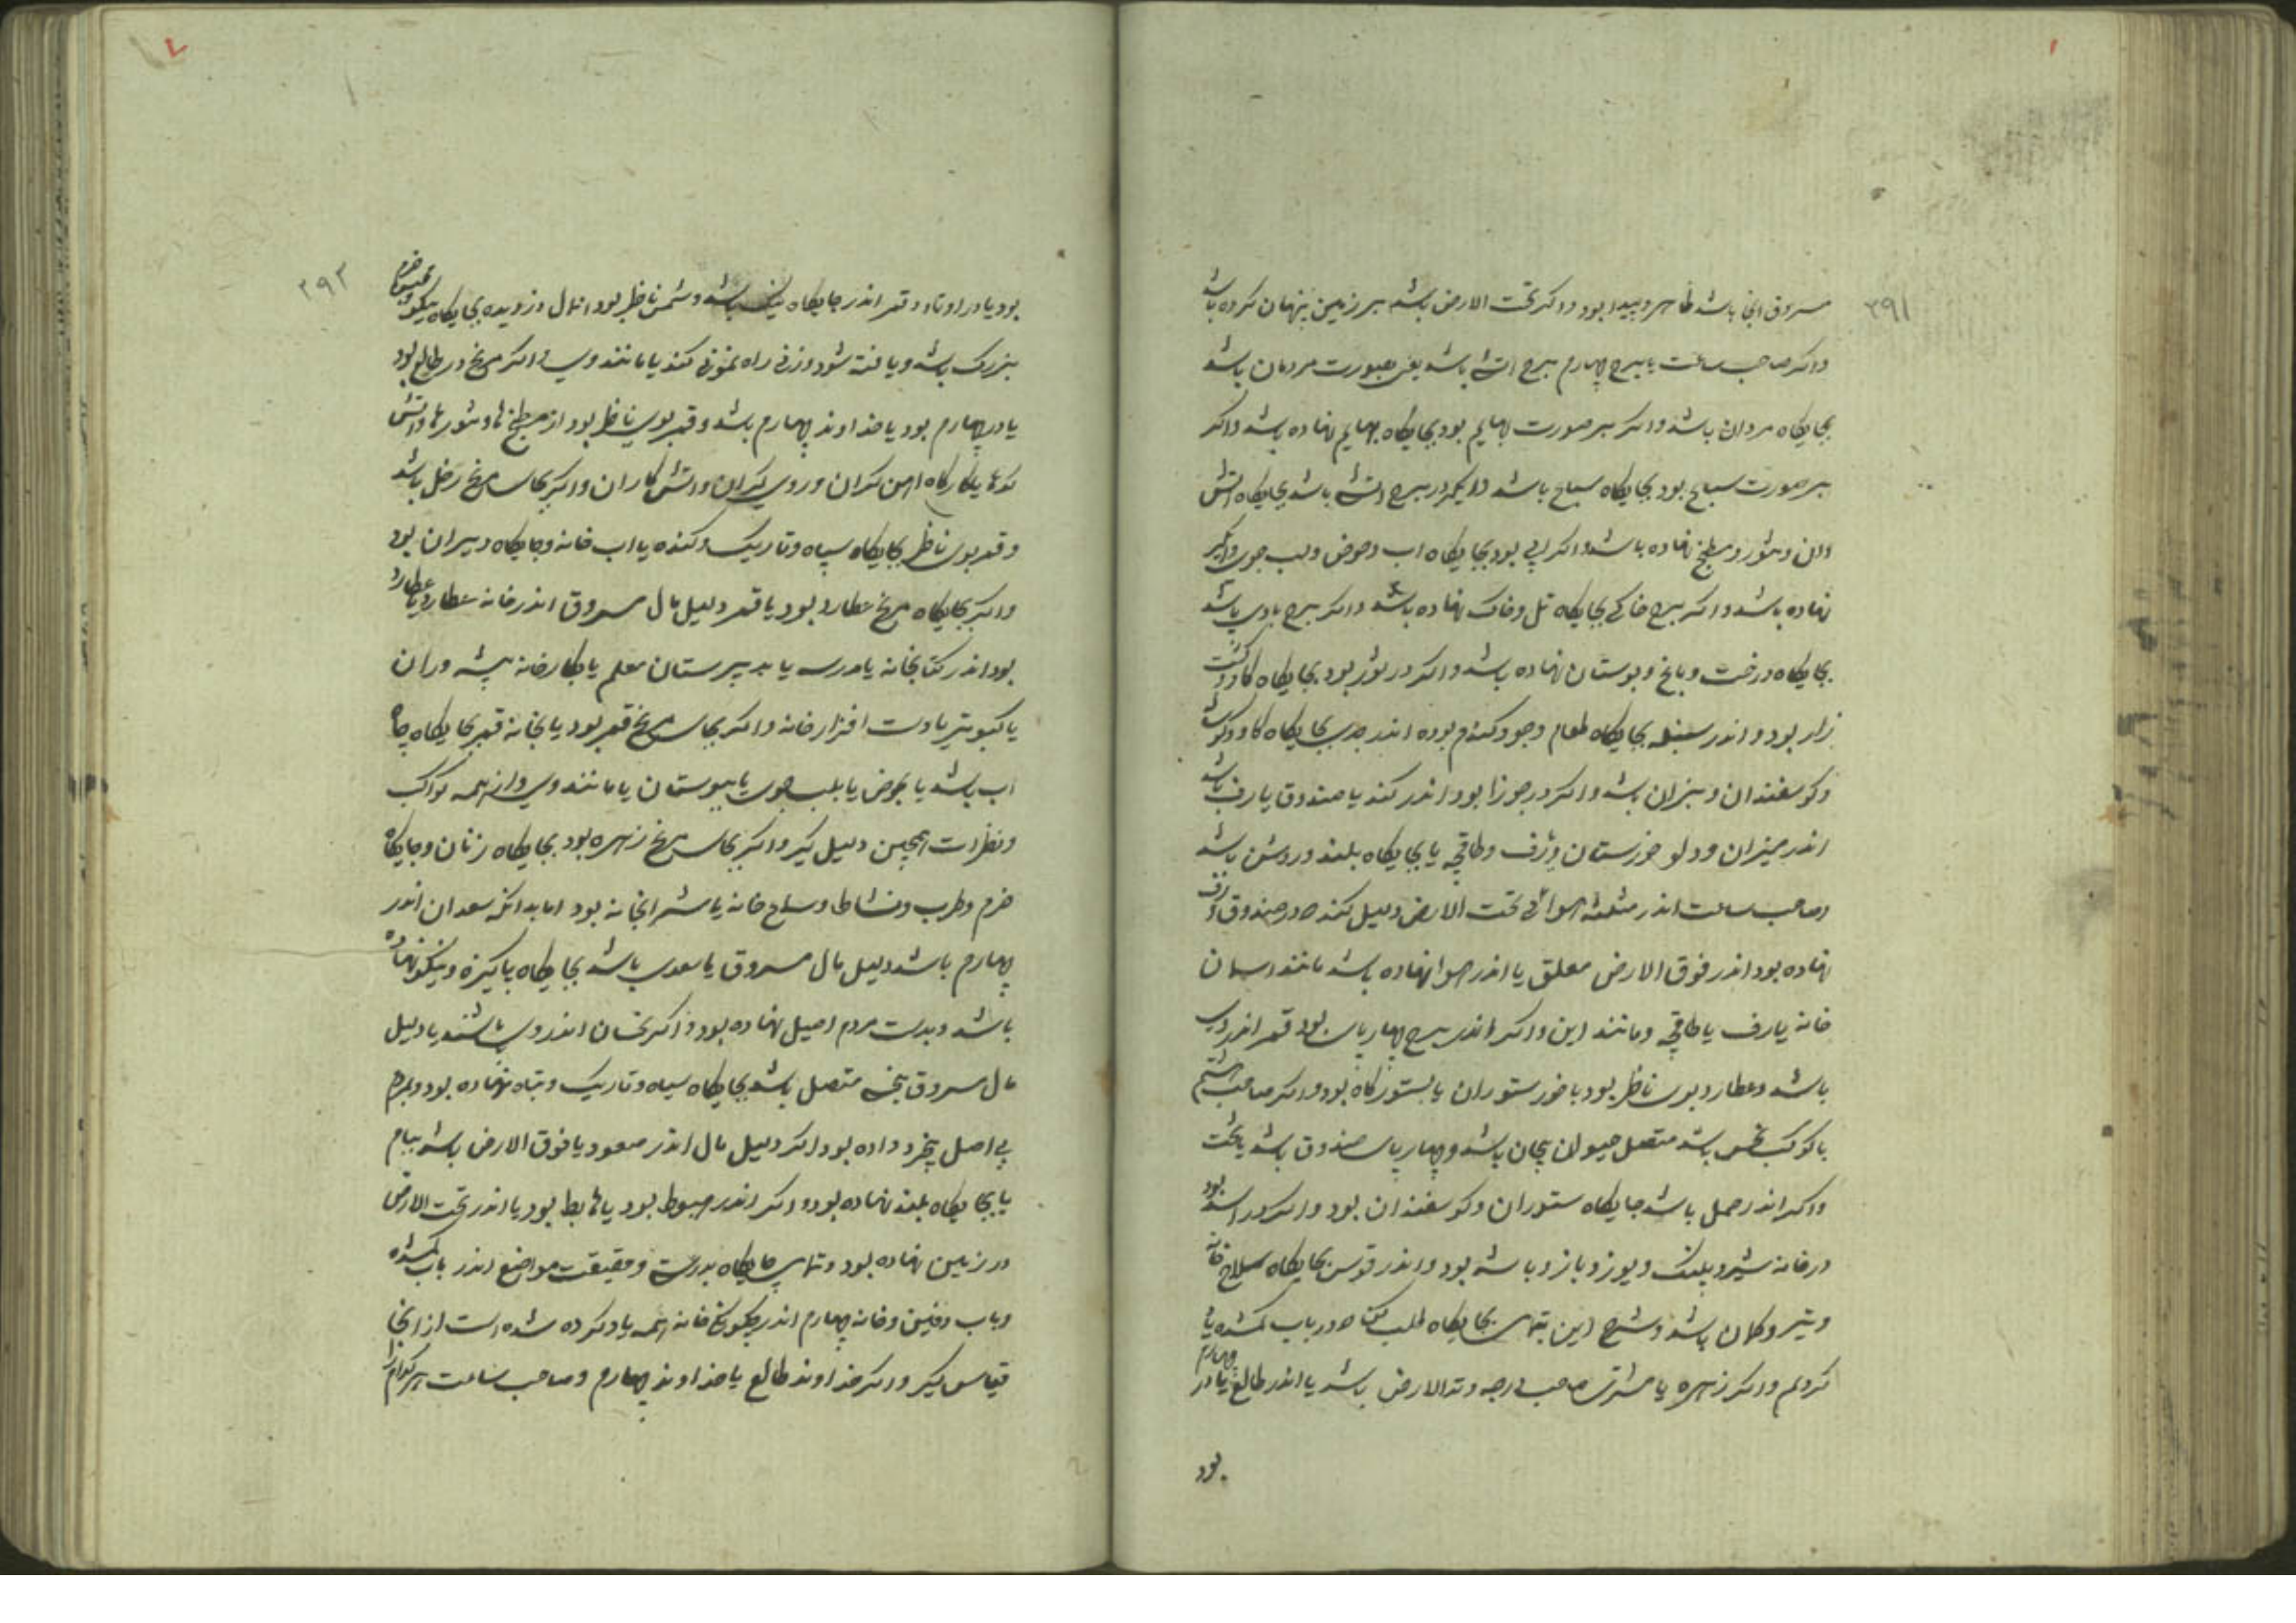 ۳۹۱
مسروق انجا باشد ظاهر و پیدا بود و اکر تحت الارض باشد بر زمین پنهان کرده باشد
واکر صاحب ساعت یا برج چهارم برج انسی باشد یعنی بصورت مردمان باشد
بجایکاه مردان باشد واکر بر صورت بهایم بود بجایکاه بهایم نهاده باشد واکر
بر صورت سباع بود بجایکاه سباع باشد در برج اتشی باشد بجایکاه اتش
دان و تنور و مطبخ نهاده باشد واکر ابی بود بجایکاه اب و حوض ولب جوی
نهاده باشد واکر برج خاکی بجایکاه تل وخاک نهاده باشد واکر برج بادی باشد
بجایکاه درخت و باغ و بوستان نهاده باشد واکر در ثور بود بجایکاه کاو و کشت
زار بود و اندر سنبله بجایکاه طعام وجو وکندم بوده اندر جدی بجایکاه کاو
وکوسفندان و بزان باشد واکر در جوزا بود اندر کند یا صندوق یا رف باشد
اندر میزان ودلو خورستان ورف وطاقچه یا بجایکاه بلند و روشن باشد
وصاحب ساعت اندر مثلثه هوائی تحت الارض دلیل کند در صندوق
نهاده بود اندر فوق الارض معلق یا اندر هوا نهاده باشد مانند اسمان
خانه یا رف یا طاقچه ومانند این واکر اندر برج چهار پای بود قمر اندر وی
باشد وعطارد بوی ناظر بود با خور ستوران یا بستورکاه بود واکر صاحب هشتم
با کوکب نحس باشد متصل حیوان بیجان باشد و چهار پای صندوق باشد یا تخت
واکر اندر حمل باشد جایکاه ستوران وکوسفندان بود واکر در اسد بود
در خانه شیر و پلنک ویوز و باز و باشه بود واندر قوس بجایکاه سلاح خانه
وتیر وکمان باشد وشرح این بتمامی بجایکاه طلب در باب کمشده یاد
کردیم واکر زهره یا مشتری صاحب درجه وتد الارض باشد یا اندر طالع یا در چهارم
بود
۳۹۲
بود یا در اوتاد و قمر اندر جایکاه نیک باشد و شمس ناظر بود انمال دزدیده بجایکاه نیکو و خرم
بزرک باشد و یافته شود وزنی راه نمونی کند یا مانند وی واکر مریخ در طالع بود
یا در چهارم بود یا خداوند چهارم باشد و قمر بوی ناظر بود از مطبخ ها و تنورها واتش
کدها یا کارکاه اهن کران و روی کران واتش کاران واکر بجای مریخ زحل باشد
و قمر بوی ناظر بجایکاه سیاه و تاریک وکنده یا اب خانه وجایکاه دبیران بود
واکر بجایکاه مریخ عطارد بود یا قمر دلیل مال مسروق اندر خانه عطارد یا عطارد
بود اندر کتابخانه یا مدرسه یا بدبیرستان معلم یا بکارخانه پیشه وران
یا کبوتر یا دست افزار خانه واکر بجای مریخ قمر بود یا بخانه قمر بجایکاه چاه
اب باشد یا بحوض یا بلب جوی یا ببوستان یا مانند وی واز همه کواکب
ونظرات همچنین دلیل کیر واکر بجای مریخ زهره بود بجایکاه زنان وجایکاه
خرم وطرب ونشاط وسلاح خانه یا شرابخانه بود اما بدانکه سعدان اندر
چهارم باشد دلیل مال مسروق یا سعدی باشد بجایکاه پاکیزه ونیکو نهاده
باشد وبدست مردم اصیل نهاده بود واکر نحسان اندر وی باشند یا دلیل
مال مسروق بنحس متصل باشد بجایکاه سیاه وتاریک وتباه نهاده بود وبمردم
بی اصل بیخرد داده بود اکر دلیل مال اندر صعود یا فوق الارض باشد ببام
یا بجایکاه بلند نهاده بود واکر اندر هبوط بود یا هابط بود یا اندر تحت الارض
در زمین نهاده بود وتمامی جایکاه بدرستی وحقیقت مواضع اندر باب کمشده
وباب دفین وخانه چهارم اندر خانه همه یاد کرده شده است از انجا
قیاس کیر واکر خداوند طالع یا خداوند چهارم وصاحب ساعت هر کدام